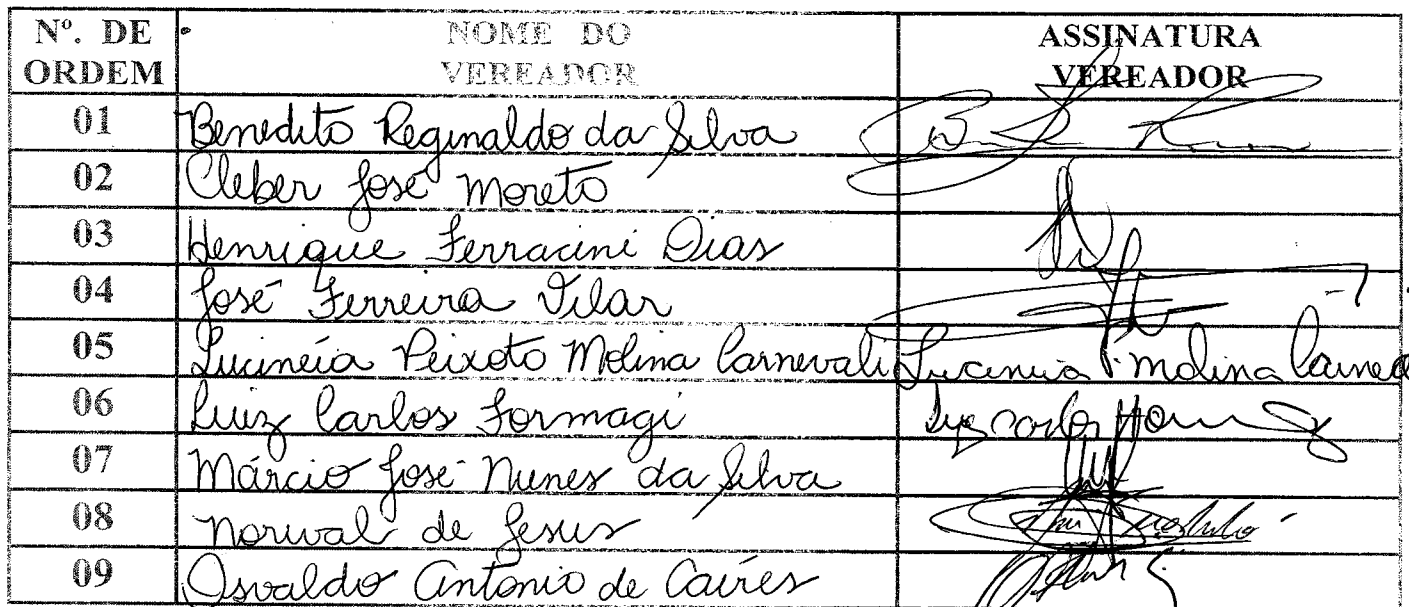 Nº. DE ORDEM NOME DO VEREADOR ASSINATURA VEREADOR
01 Benedito Reginaldo da Silva
02 Cleber José Moreto
03 Henrique Ferracini Dias
04 José Ferreira Vilar
05 Lucinéia Peixoto Molina Carnevali Lucineia P. Molina
06 Luiz Carlos Formagi
07 Márcio José Nunes da Silva
08 Norival de Jesus
09 Osvaldo Antonio de Caires